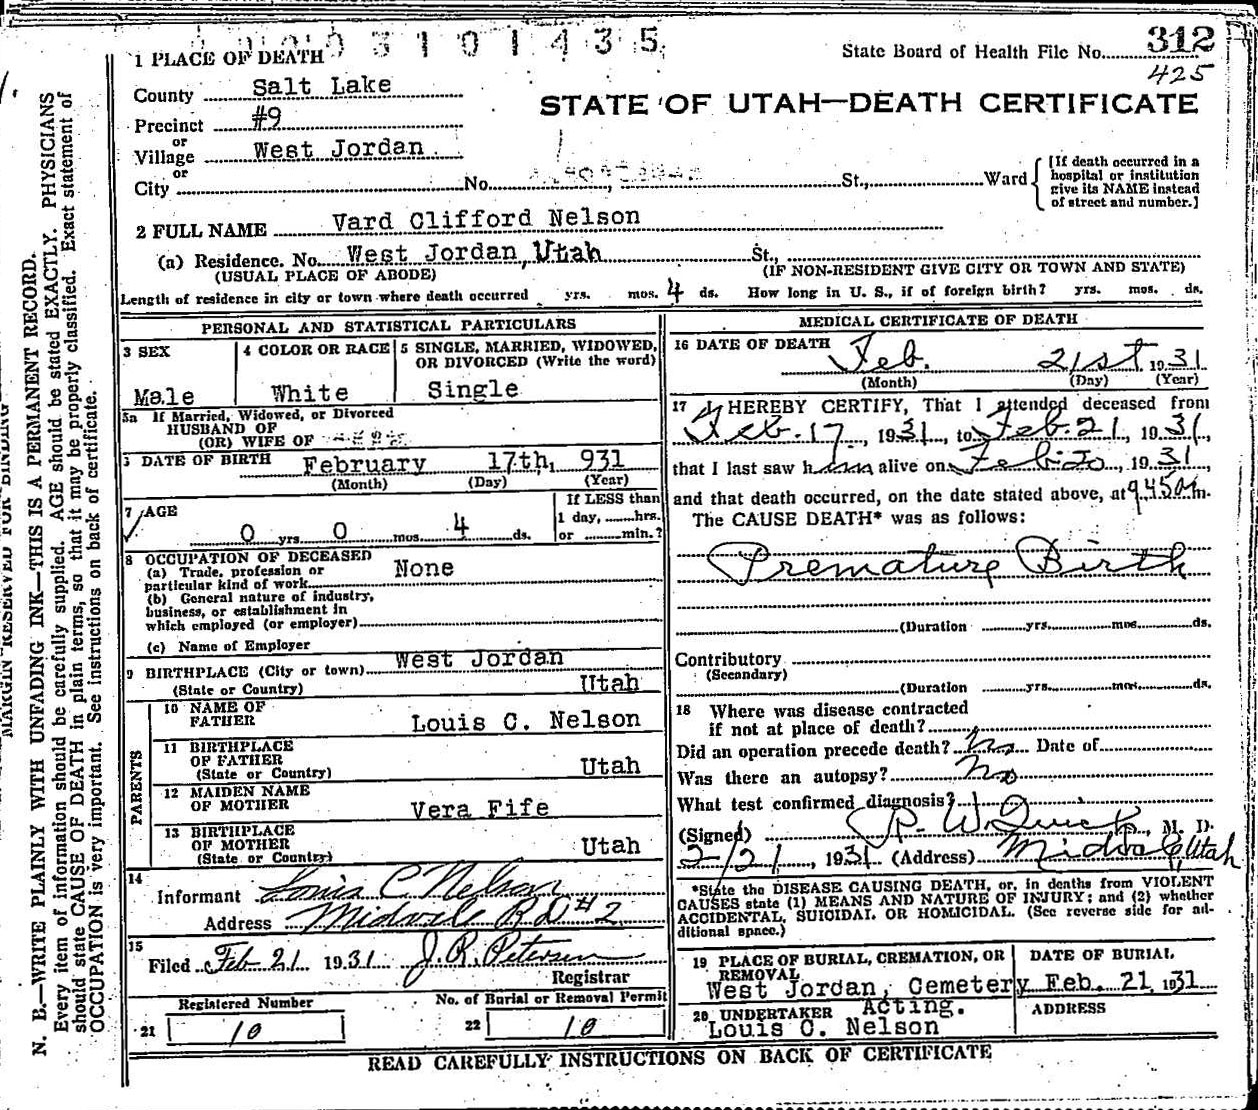 3 1 0 1 4 3 5
1 PLACE OF DEATH
State Board of Health File No. 312
425
County Salt Lake
STATE OF UTAH—DEATH CERTIFICATE
Precinct #9
or
Village West Jordan
or
City No. St., Ward
[If death occurred in a
hospital or institution
give its NAME instead
of street and number.]
2 FULL NAME Vard Clifford Nelson
(a) Residence. No. West Jordan, Utah St.,
(USUAL PLACE OF ABODE) (IF NON-RESIDENT GIVE CITY OR TOWN AND STATE)
Length of residence in city or town where death occurred yrs. mos. 4 ds. How long in U. S., if of foreign birth? yrs. mos. ds.
PERSONAL AND STATISTICAL PARTICULARS
3 SEX
Male
4 COLOR OR RACE
White
5 SINGLE, MARRIED, WIDOWED,
OR DIVORCED (Write the word)
Single
5a If Married, Widowed, or Divorced
HUSBAND OF
(OR) WIFE OF
DATE OF BIRTH February 17th, 931
(Month) (Day) (Year)
7 AGE
0 yrs 0 mos. 4 ds.
If LESS than
1 day, hrs.
or min.?
8 OCCUPATION OF DECEASED
(a) Trade, profession or
particular kind of work None
(b) General nature of industry,
business, or establishment in
which employed (or employer)
(c) Name of Employer
9 BIRTHPLACE (City or town) West Jordan
(State or Country) Utah
PARENTS
10 NAME OF
FATHER Louis C. Nelson
11 BIRTHPLACE
OF FATHER
(State or Country) Utah
12 MAIDEN NAME
OF MOTHER Vera Fife
13 BIRTHPLACE
OF MOTHER
(State or Country) Utah
14
Informant Louis C Nelson
Address Midvale R.D #2
15
Filed Feb 21 1931 J. R. Petersen
Registrar
Registered Number
21 10
No. of Burial or Removal Permit
22 10
MEDICAL CERTIFICATE OF DEATH
16 DATE OF DEATH Feb. 21st 1931
(Month) (Day) (Year)
17 I HEREBY CERTIFY, That I attended deceased from
Feb. 17, 1931, to Feb. 21, 1931,
that I last saw him alive on Feb. 20, 1931,
and that death occurred, on the date stated above, at 9.45 m.
The CAUSE DEATH* was as follows:
Premature Birth
(Duration yrs. mos ds.
Contributory
(Secondary)
(Duration yrs. mos. ds.
18 Where was disease contracted
if not at place of death?
Did an operation precede death? No Date of
Was there an autopsy? No
What test confirmed diagnosis?
(Signed) M. D.
2/21, 1931 (Address) Midvale, Utah
*State the DISEASE CAUSING DEATH, or, in deaths from VIOLENT
CAUSES state (1) MEANS AND NATURE OF INJURY; and (2) whether
ACCIDENTAL, SUICIDAL OR HOMICIDAL. (See reverse side for ad-
ditional space.)
19 PLACE OF BURIAL, CREMATION, OR
REMOVAL
West Jordan, Cemetery
DATE OF BURIAL
Feb. 21, 1931
20 UNDERTAKER Acting.
Louis C. Nelson
ADDRESS
READ CAREFULLY INSTRUCTIONS ON BACK OF CERTIFICATE
MARGIN RESERVED FOR BINDING
N. B.—WRITE PLAINLY WITH UNFADING INK—THIS IS A PERMANENT RECORD.
Every item of information should be carefully supplied. AGE should be stated EXACTLY. PHYSICIANS
should state CAUSE OF DEATH in plain terms, so that it may be properly classified. Exact statement of
OCCUPATION is very important. See instructions on back of certificate.